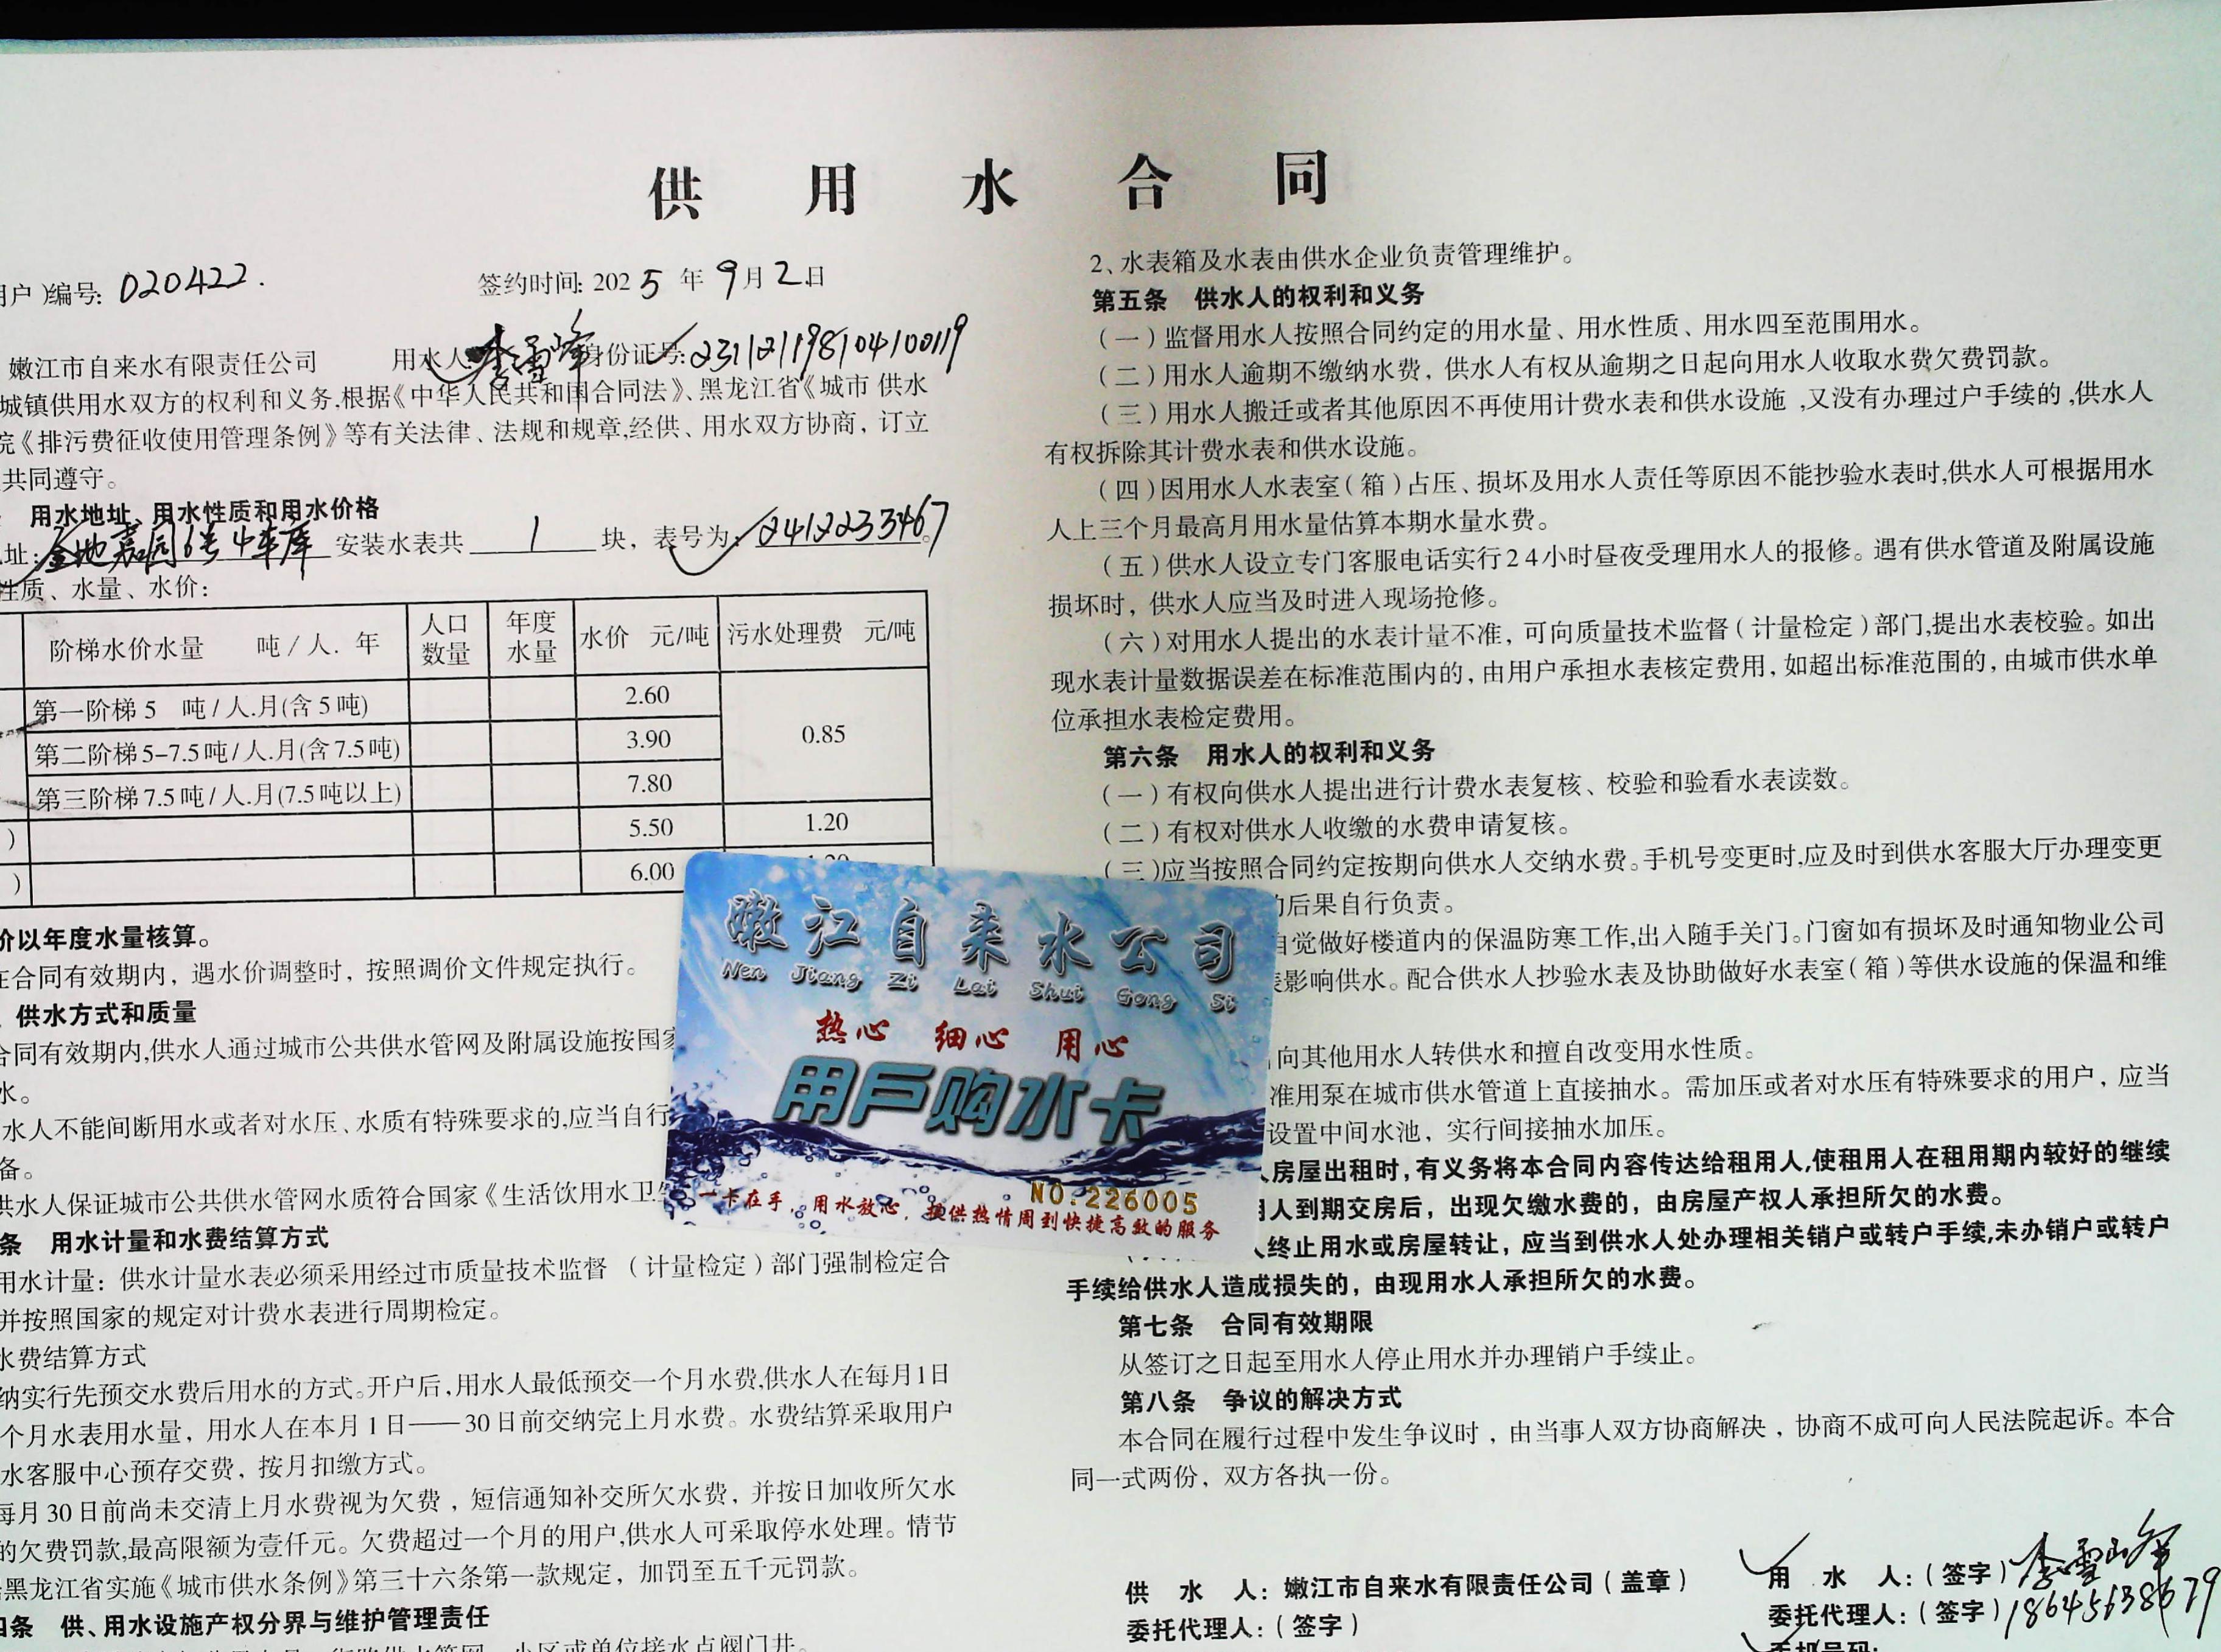 供用水合同
用户)编号: 020422.
签约时间: 2025年9月2日
嫩江市自来水有限责任公司 用水人 李雪峰 身份证号: 231121198104100119
城镇供用水双方的权利和义务,根据《中华人民共和国合同法》、黑龙江省《城市 供水
院《排污费征收使用管理条例》等有关法律、法规和规章,经供、用水双方协商，订立
共同遵守。
用水地址、用水性质和用水价格
址: 金地嘉园6号4车库 安装水表共 1 块，表号为: 2412233467。
性质、水量、水价:
阶梯水价水量 吨/人. 年 人口数量 年度水量 水价 元/吨 污水处理费 元/吨
第一阶梯 5 吨/人.月(含5吨) 2.60 0.85
第二阶梯5-7.5吨/人.月(含7.5吨) 3.90
第三阶梯7.5吨/人.月(7.5吨以上) 7.80
) 5.50 1.20
) 6.00
价以年度水量核算。
在合同有效期内，遇水价调整时，按照调价文件规定执行。
供水方式和质量
合同有效期内,供水人通过城市公共供水管网及附属设施按国家
水。
水人不能间断用水或者对水压、水质有特殊要求的,应当自行
备。
供水人保证城市公共供水管网水质符合国家《生活饮用水卫生
条 用水计量和水费结算方式
用水计量：供水计量水表必须采用经过市质量技术监督 （计量检定）部门强制检定合
并按照国家的规定对计费水表进行周期检定。
水费结算方式
纳实行先预交水费后用水的方式。开户后,用水人最低预交一个月水费,供水人在每月1日
个月水表用水量，用水人在本月1日——30日前交纳完上月水费。水费结算采取用户
水客服中心预存交费，按月扣缴方式。
每月30日前尚未交清上月水费视为欠费，短信通知补交所欠水费，并按日加收所欠水
的欠费罚款,最高限额为壹仟元。欠费超过一个月的用户,供水人可采取停水处理。情节
黑龙江省实施《城市供水条例》第三十六条第一款规定，加罚至五千元罚款。
四条 供、用水设施产权分界与维护管理责任
2、水表箱及水表由供水企业负责管理维护。
第五条 供水人的权利和义务
（一）监督用水人按照合同约定的用水量、用水性质、用水四至范围用水。
（二）用水人逾期不缴纳水费，供水人有权从逾期之日起向用水人收取水费欠费罚款。
（三）用水人搬迁或者其他原因不再使用计费水表和供水设施,又没有办理过户手续的,供水人
有权拆除其计费水表和供水设施。
（四）因用水人水表室（箱）占压、损坏及用水人责任等原因不能抄验水表时,供水人可根据用水
人上三个月最高月用水量估算本期水量水费。
（五）供水人设立专门客服电话实行24小时昼夜受理用水人的报修。遇有供水管道及附属设施
损坏时，供水人应当及时进入现场抢修。
（六）对用水人提出的水表计量不准，可向质量技术监督（计量检定）部门,提出水表校验。如出
现水表计量数据误差在标准范围内的，由用户承担水表核定费用，如超出标准范围的，由城市供水单
位承担水表检定费用。
第六条 用水人的权利和义务
（一）有权向供水人提出进行计费水表复核、校验和验看水表读数。
（二）有权对供水人收缴的水费申请复核。
（三）应当按照合同约定按期向供水人交纳水费。手机号变更时,应及时到供水客服大厅办理变更
后果自行负责。
自觉做好楼道内的保温防寒工作,出入随手关门。门窗如有损坏及时通知物业公司
影响供水。配合供水人抄验水表及协助做好水表室（箱）等供水设施的保温和维
向其他用水人转供水和擅自改变用水性质。
准用泵在城市供水管道上直接抽水。需加压或者对水压有特殊要求的用户，应当
设置中间水池，实行间接抽水加压。
人房屋出租时,有义务将本合同内容传达给租用人,使租用人在租用期内较好的继续
用人到期交房后，出现欠缴水费的，由房屋产权人承担所欠的水费。
人终止用水或房屋转让，应当到供水人处办理相关销户或转户手续,未办销户或转户
手续给供水人造成损失的，由现用水人承担所欠的水费。
第七条 合同有效期限
从签订之日起至用水人停止用水并办理销户手续止。
第八条 争议的解决方式
本合同在履行过程中发生争议时，由当事人双方协商解决，协商不成可向人民法院起诉。本合
同一式两份，双方各执一份。
供 水 人：嫩江市自来水有限责任公司（盖章）
委托代理人：（签字）
用 水 人：（签字）李雪峰
委托代理人：（签字）18645638679
手机号码:
嫩江自来水公司
Nen Jiang Zi Lai Shui Gong Si
热心 细心 用心
用户购水卡
NO.226005
一卡在手，用水放心，提供热情周到快捷高效的服务